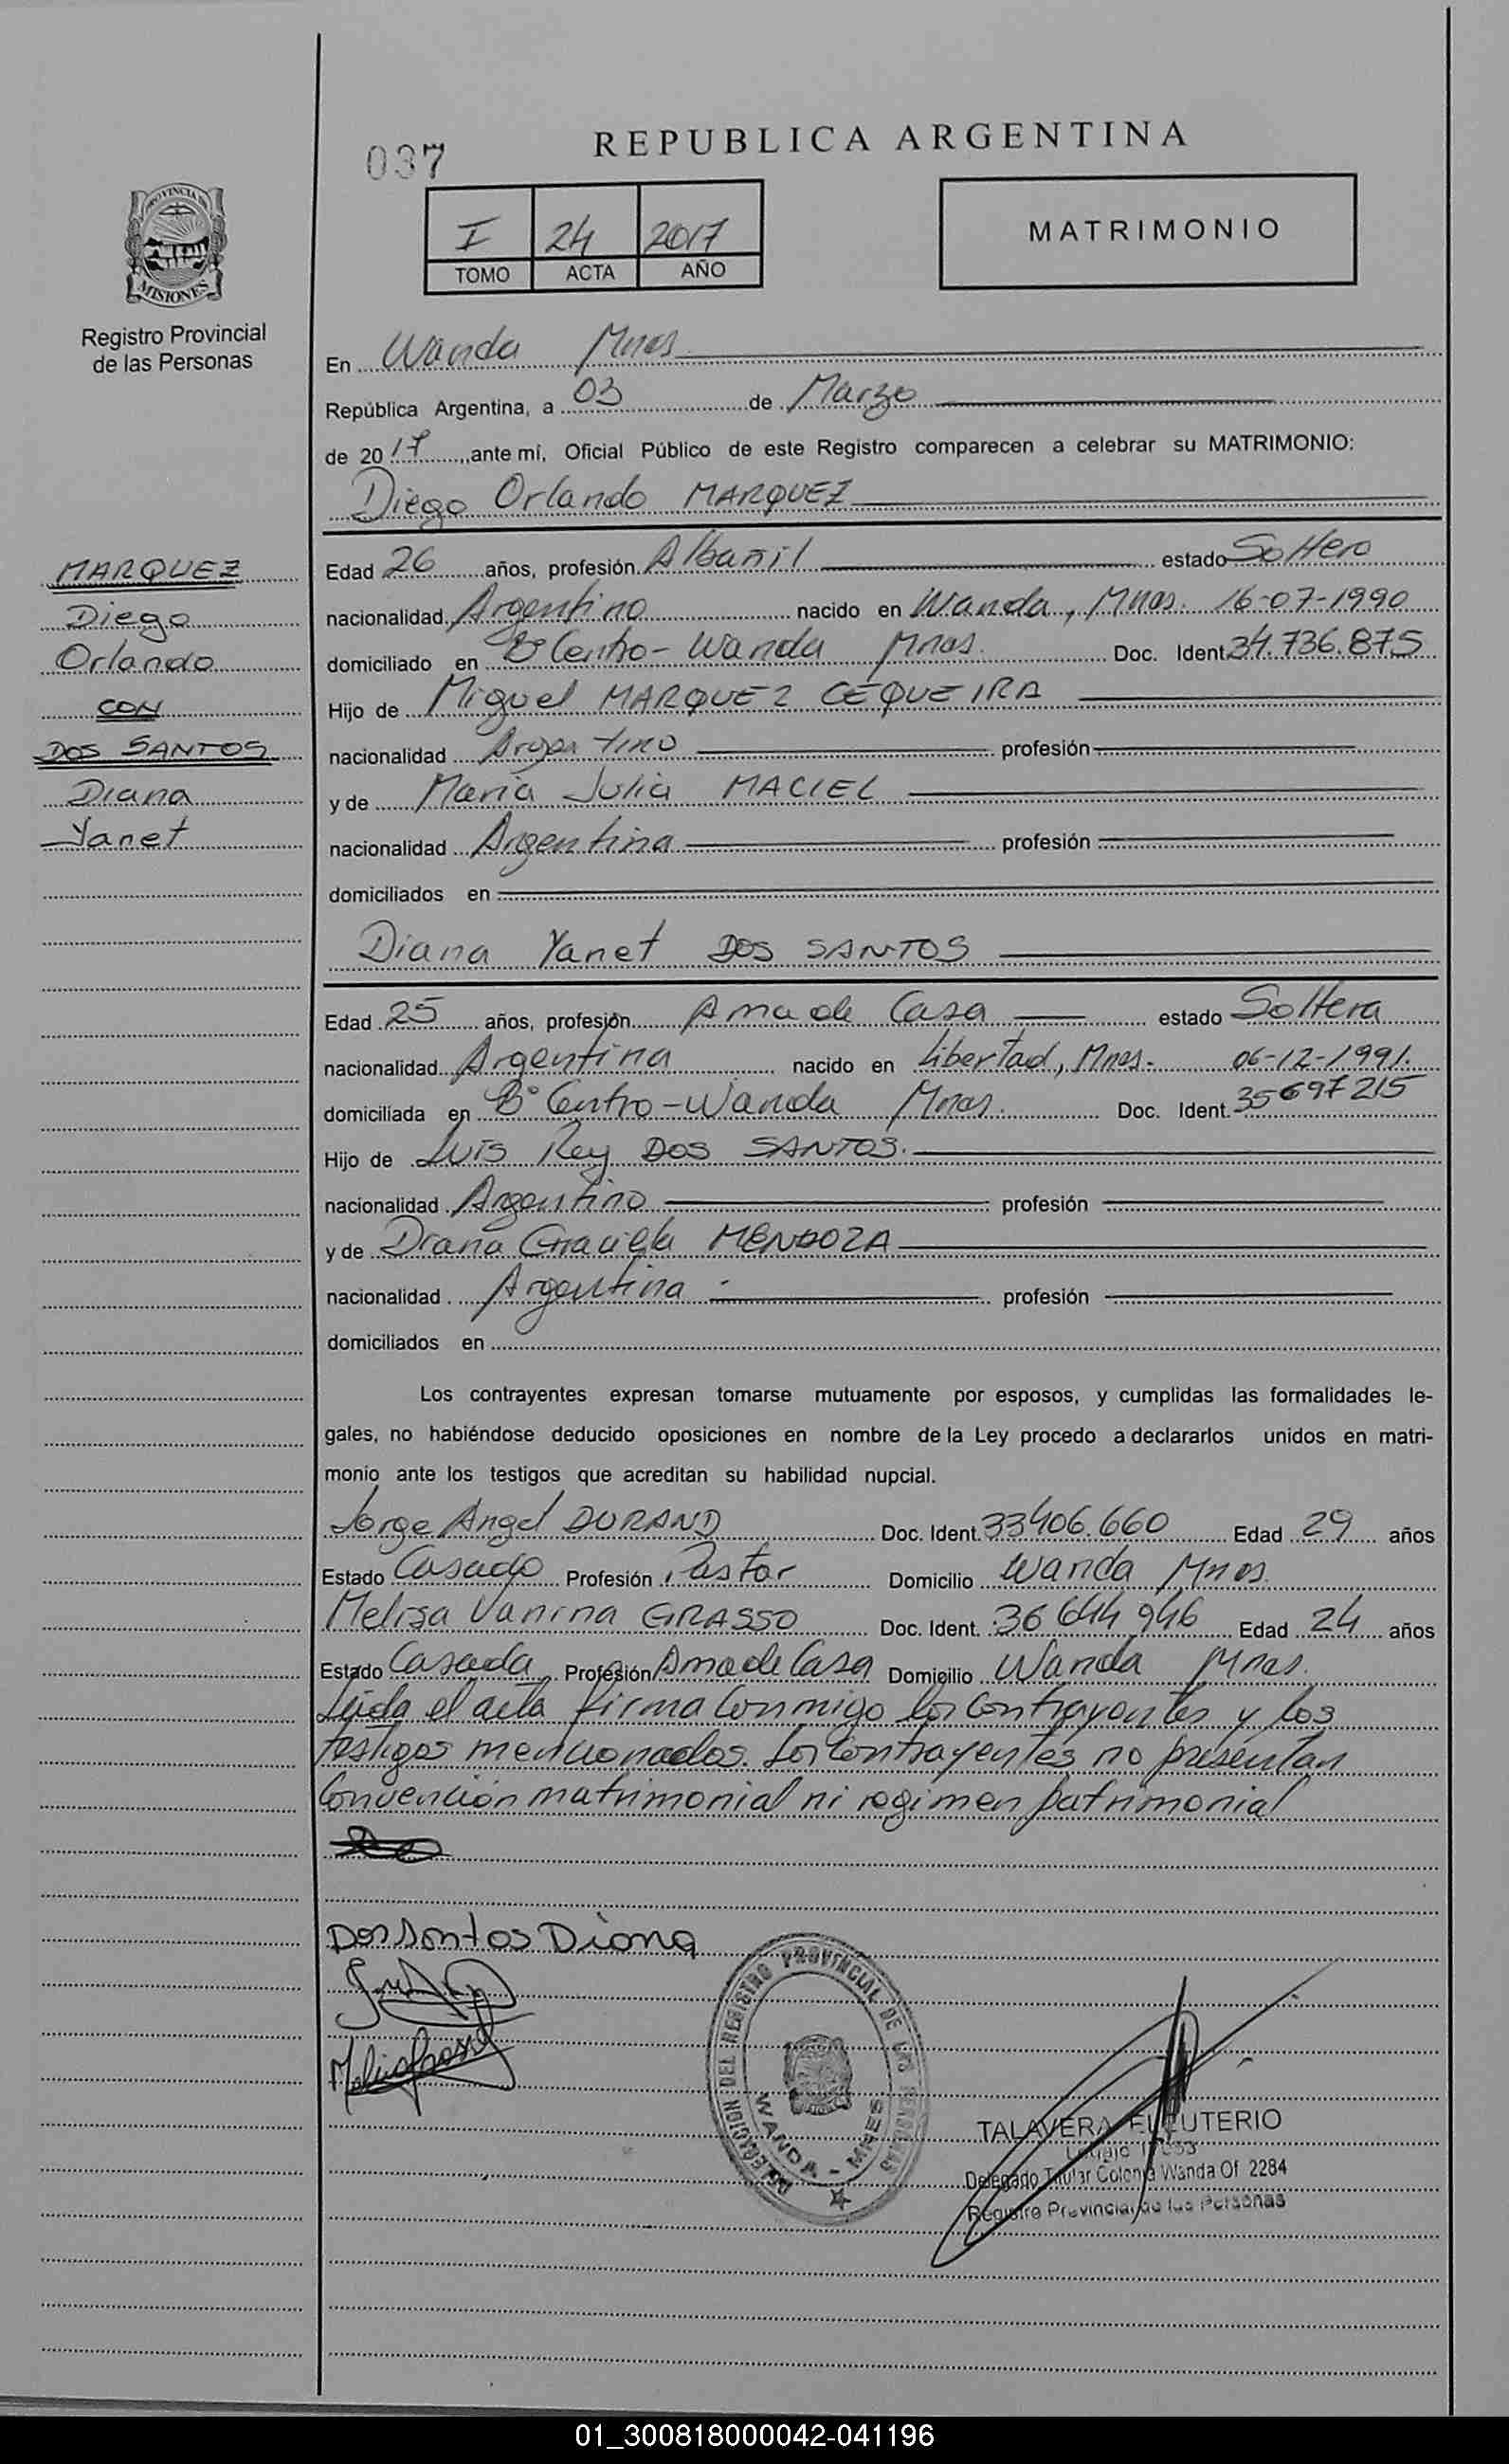 REPUBLICA ARGENTINA
037
I 24 2017
TOMO ACTA AÑO
MATRIMONIO
PROVINCIA DE
MISIONES
Registro Provincial
de las Personas
En Wanda Mnes
República Argentina, a 03 de Marzo
de 2017, ante mí, Oficial Público de este Registro comparecen a celebrar su MATRIMONIO:
Diego Orlando MARQUEZ
MARQUEZ
Diego
Orlando
CON
DOS SANTOS
Diana
Yanet
Edad 26 años, profesión Albañil estado Soltero
nacionalidad Argentino nacido en Wanda, Mnes. 16-07-1990
domiciliado en B° Centro - Wanda Mnes. Doc. Ident 34.736.875
Hijo de Miguel MARQUEZ CEQUEIRA
nacionalidad Argentino profesión
y de Maria Julia MACIEL
nacionalidad Argentina profesión
domiciliados en
Diana Yanet DOS SANTOS
Edad 25 años, profesión Ama de Casa estado Soltera
nacionalidad Argentina nacido en Libertad, Mnes. 06-12-1991.
domiciliada en B° Centro - Wanda Mnes. Doc. Ident. 35697215
Hijo de Luis Rey DOS SANTOS.
nacionalidad Argentino profesión
y de Diana Graciela MENDOZA
nacionalidad Argentina profesión
domiciliados en
Los contrayentes expresan tomarse mutuamente por esposos, y cumplidas las formalidades le-
gales, no habiéndose deducido oposiciones en nombre de la Ley procedo a declararlos unidos en matri-
monio ante los testigos que acreditan su habilidad nupcial.
Jorge Angel DURAND Doc. Ident. 33406.660 Edad 29 años
Estado Casado Profesión Pastor Domicilio Wanda Mnes.
Melisa Vanina GRASSO Doc. Ident. 36 644 946 Edad 24 años
Estado Casada Profesión Ama de Casa Domicilio Wanda Mnes.
Leida el acta firma conmigo los contrayentes y los
testigos mencionados. Los contrayentes no presentan
Convención matrimonial ni regimen patrimonial
Dos Santos Diana
DELEGACION DEL REGISTRO PROVINCIAL DE LAS PERSONAS
WANDA - MNES
TALAVERA ELEUTERIO
Legajo
Delegado Titular Colonia Wanda Of 2284
Registro Provincial de las Personas
01_300818000042-041196